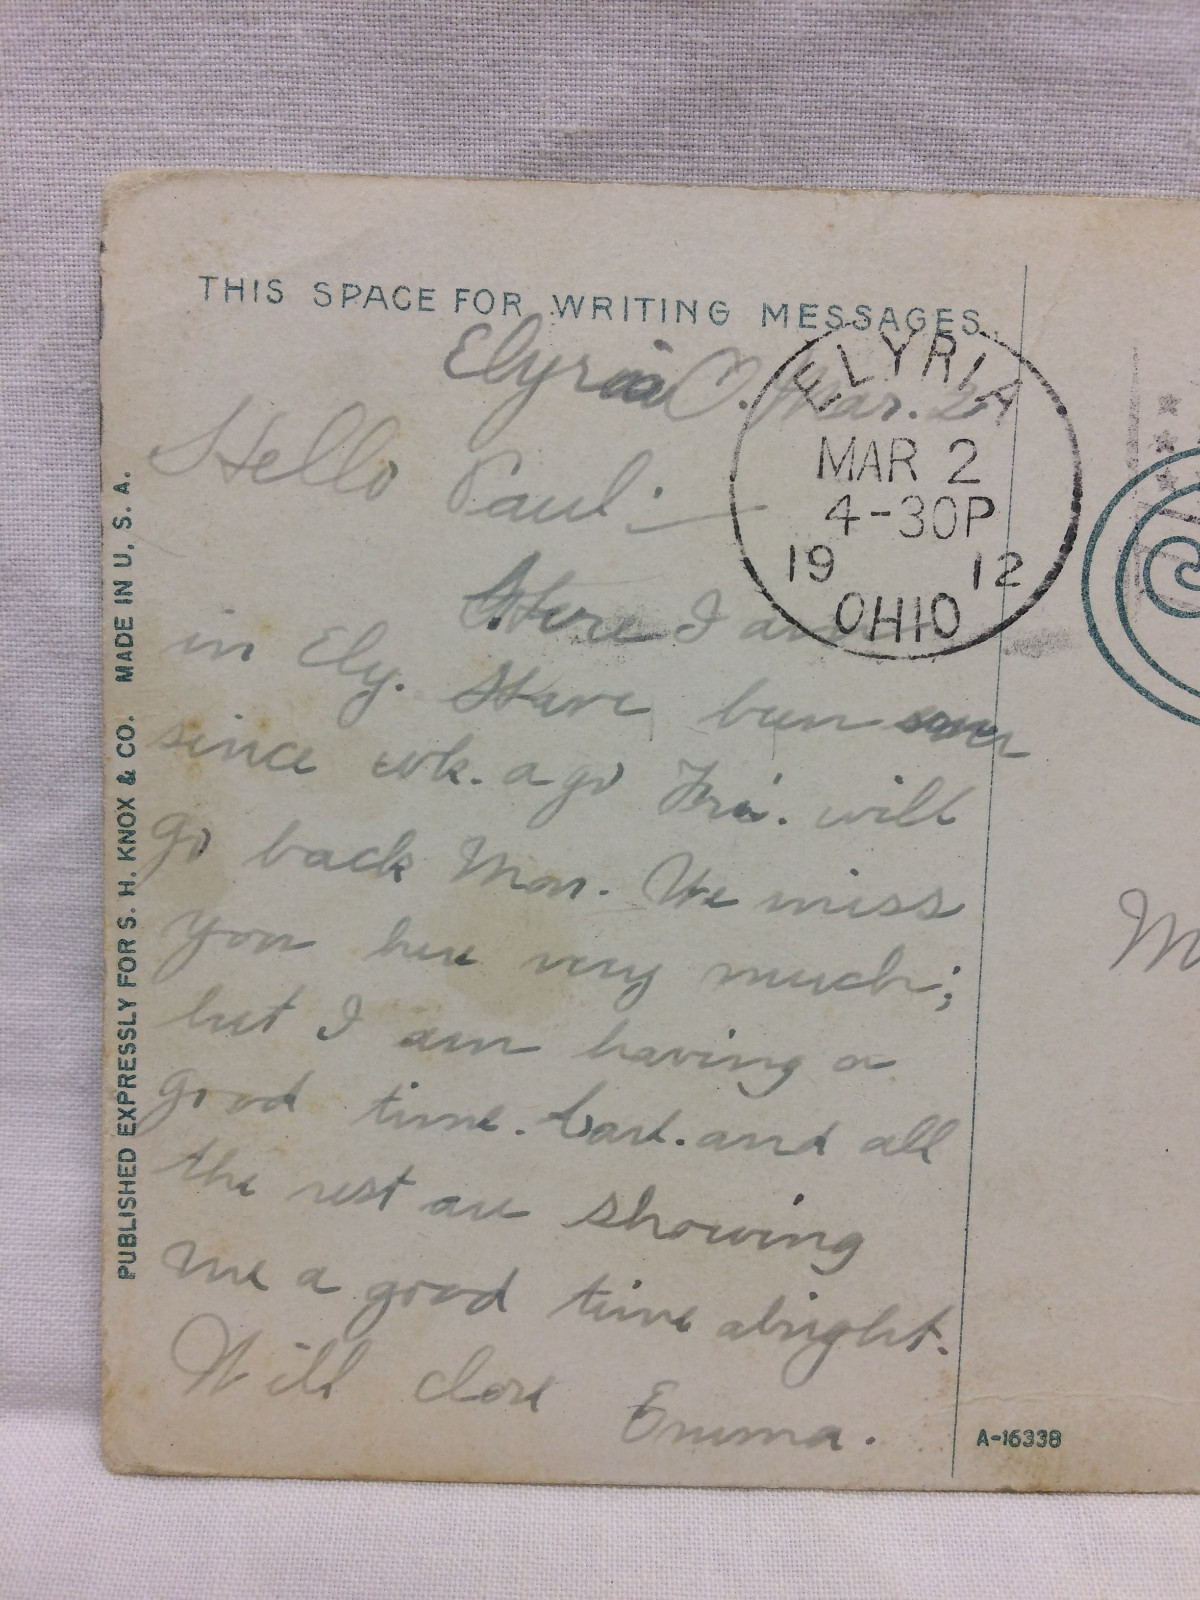 THIS SPACE FOR WRITING MESSAGES.
Elyria O. Mar. 2
Hello Paul:—
Here I am
in Ely. Have been over
since wk. ago Fri. will
go back Mon. We miss
you here very much;
but I am having a
good time. Carl. and all
the rest are showing
me a good time alright.
Will close
Emma.
ELYRIA
MAR 2
4-30P
19 12
OHIO
PUBLISHED EXPRESSLY FOR S. H. KNOX & CO. MADE IN U. S. A.
M
A-16338